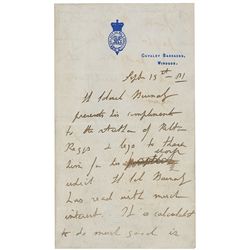 CAVALRY BARRACKS,
WINDSOR.
Sept 15th - 81
Lt Colonel Burnaby
presents his compliments
to the
& begs to thank
him for his
Lt Col Burnaby
has read with much
interest. It is calculated
to do much good in